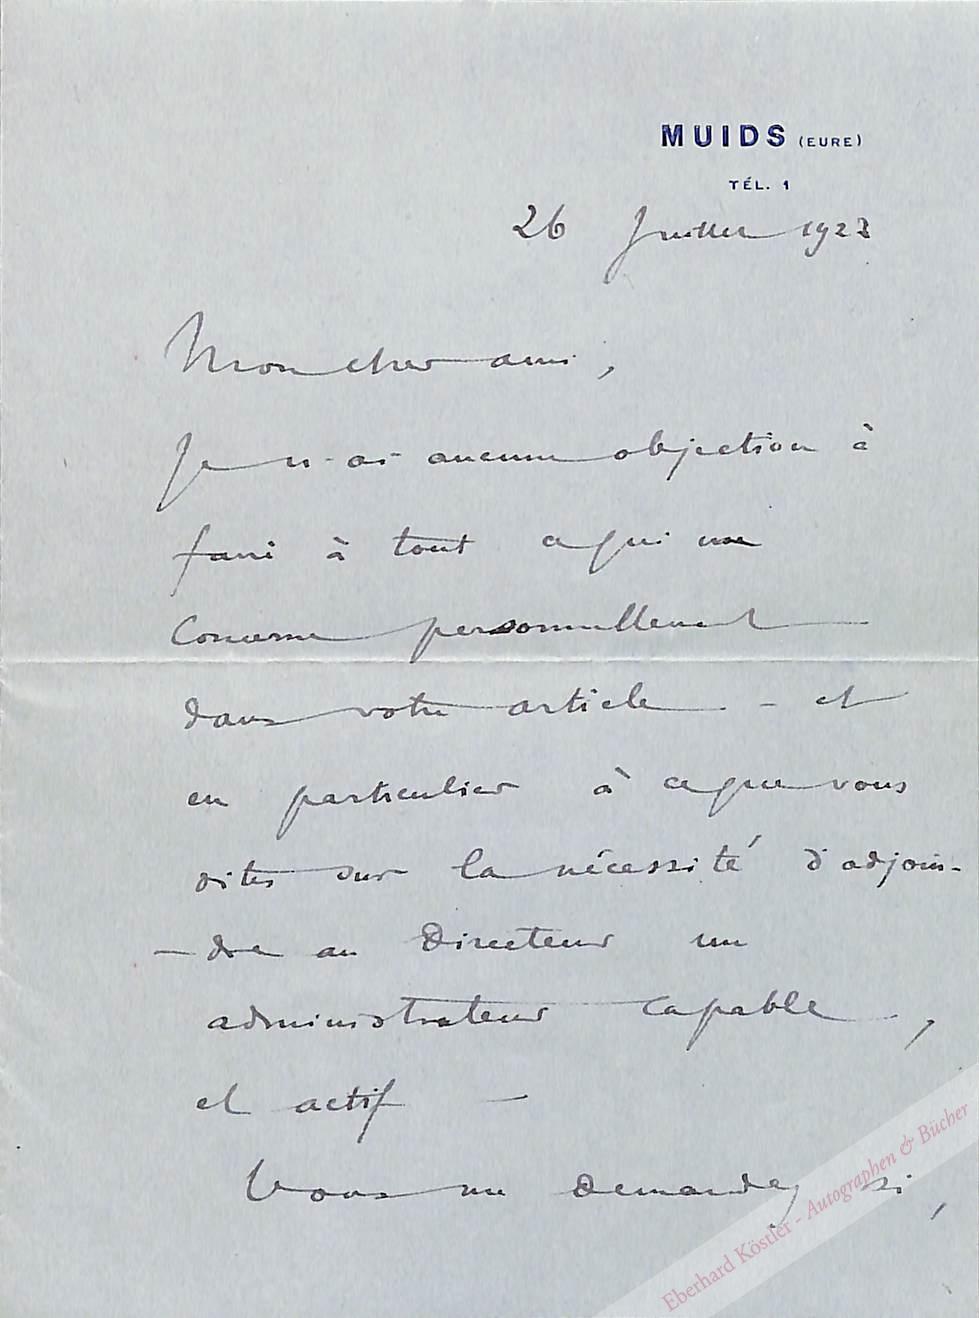 MUIDS (EURE)
TÉL. 1
26 Juillet 1923
Mon cher ami,
Je n'ai aucune objection à
faire à tout ce qui me
concerne personnellement
dans votre article - et
en particulier à ce que vous
dites sur la nécessité d'adjoin-
-dre au Directeur un
administrateur capable,
et actif -
Vous me demandez si,
Eberhard Köstler - Autographen & Bücher